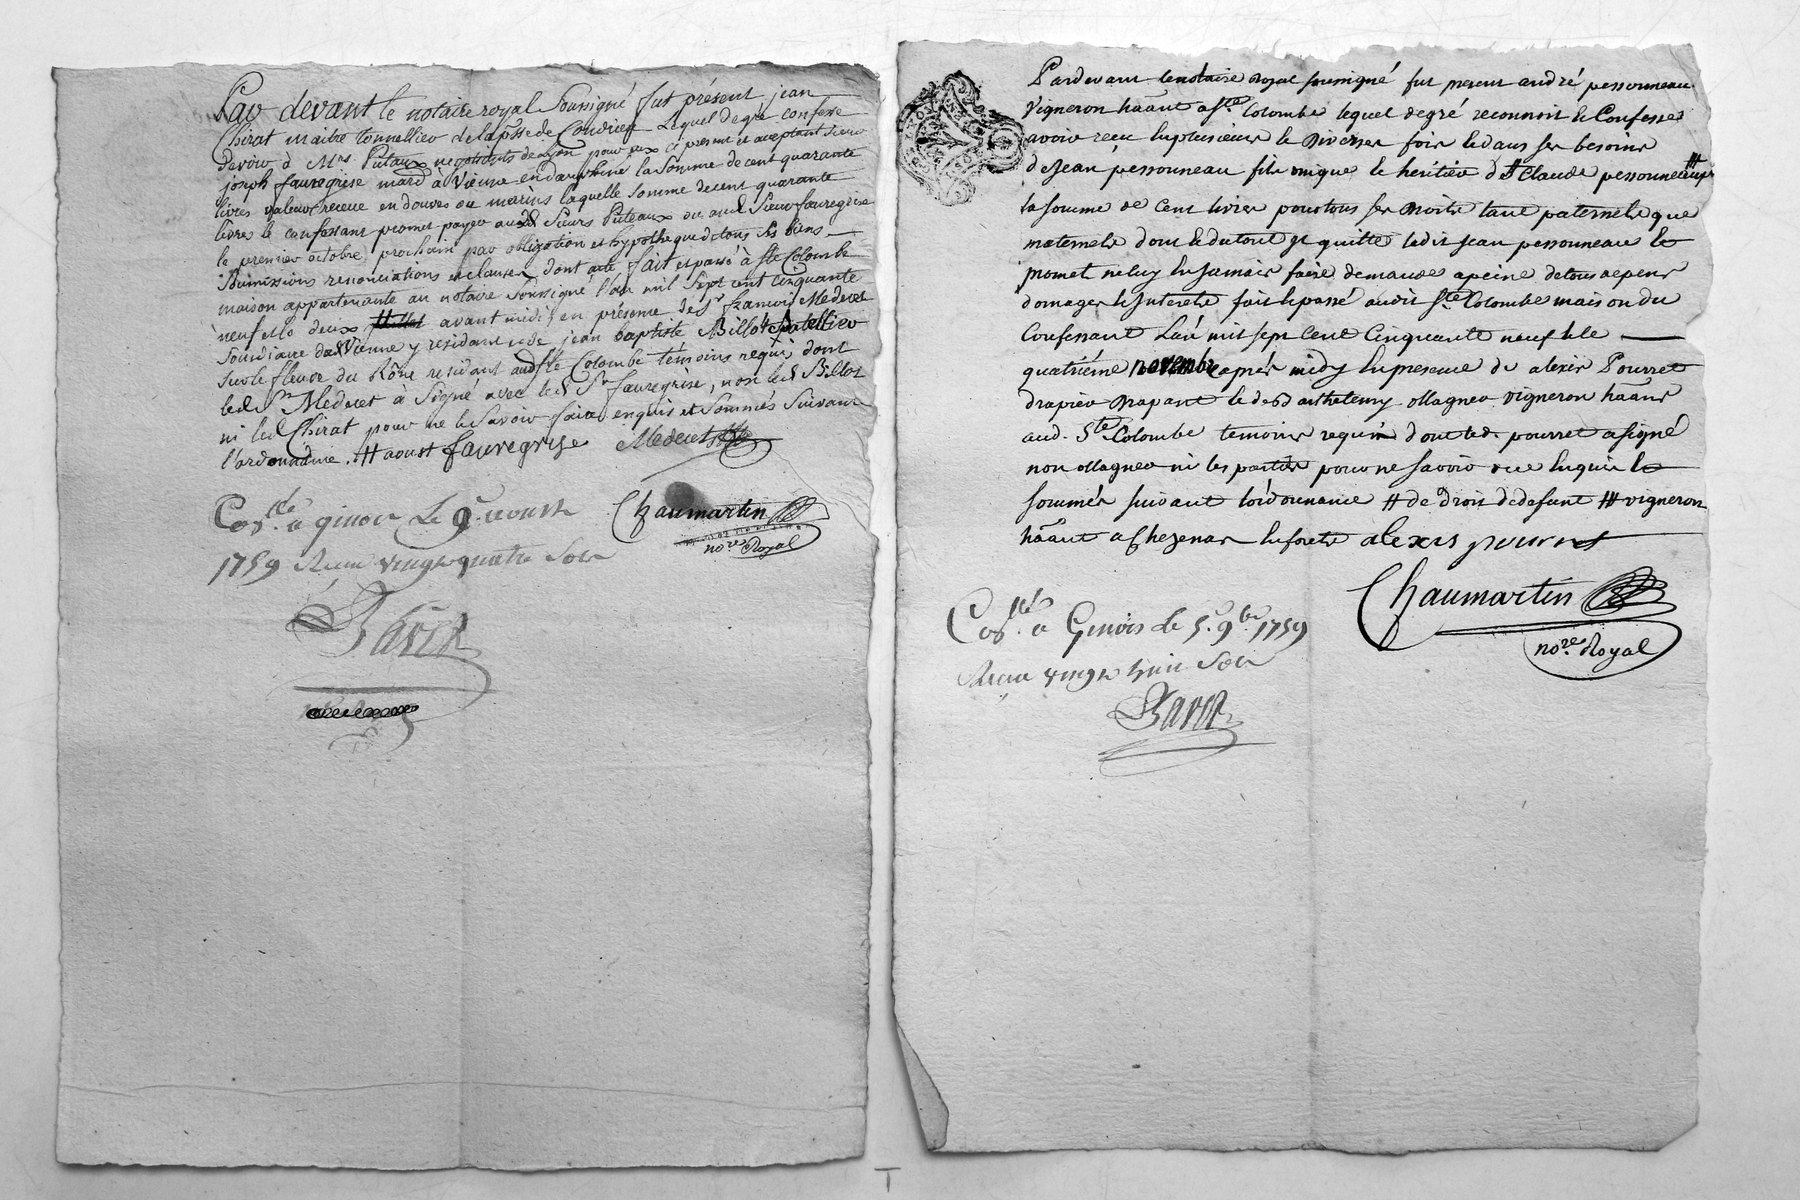 Par devant le notaire royal soussigné fut présent jean
Chirat maitre tonnellier de la psse de Condrieu Lequel de gré confesse
devoir à Mrs Puteaux negotiants de Lyon pour eux ci présent et acceptant sieur
joseph fauregrise mard à Vienne en dauphiné la somme de cent quarante
livres valeur receue en douves ou mairins laquelle somme de cent quarante
livres le confessant promet payer auxd Sieurs Puteaux ou aud Sieur fauregrise
le premier octobre prochain par obligation et hypotheque de tous ses biens
soumissions renonciations et clauses dont acte fait et passé à Ste Colombe
maison appartenante au notaire soussigné l'an mil sept cent cinquante
neuf et le deux # avant midi en présence de sr françois Mederet
dud Vienne y residant et de jean baptiste Billot
sur le fleuve du Rône residant aud Ste Colombe témoins requis dont
led Sr Mederet à signé avec led Sr fauregrise, non led Billot
ni led Chirat pour ne le savoir faire enquis et sommés suivant
l'ordonnance. # aoust fauregrise Mederet
Chaumartin
nore Royal
Conllé a givors Le 9e aoust
1759 Recu vingt quatre sols
Pardevant le notaire royal soussigné fut present andré pessonneau
vigneron haant a Ste Colombe lequel de gré reconnoit & Confesse
avoir receu en plusieurs & diverses fois & dans ses besoins
de Jean pessonneau fils unique & heritier de # Claude pessonneau #
la somme de cent livres pour tous ses droits tant paternels que
maternels dont & du tout il quitte ledit jean pessonneau &
promet ne luy en jamais faire demande a peine de tous depens
domages & interets fait & passé audit Ste Colombe maison du
Confessant L'an mil sept cent cinquante neuf & le
quatriéme novembre après midy en presence de alexis Pourret
drapier drapant & de Barthelemy Magner vigneron haans
aud. Ste Colombe temoins requis dont led. pourret a signé
non Magner ni les parties pour ne savoir de ce enquis &
sommés suivant l'ordonnance # de droit de defunt ## vigneron
haant a Chezenas en forets alexis pourret
Chaumartin
nore Royal
Conllé a Givors le 5. 9bre 1759
Recu vingt huit sols